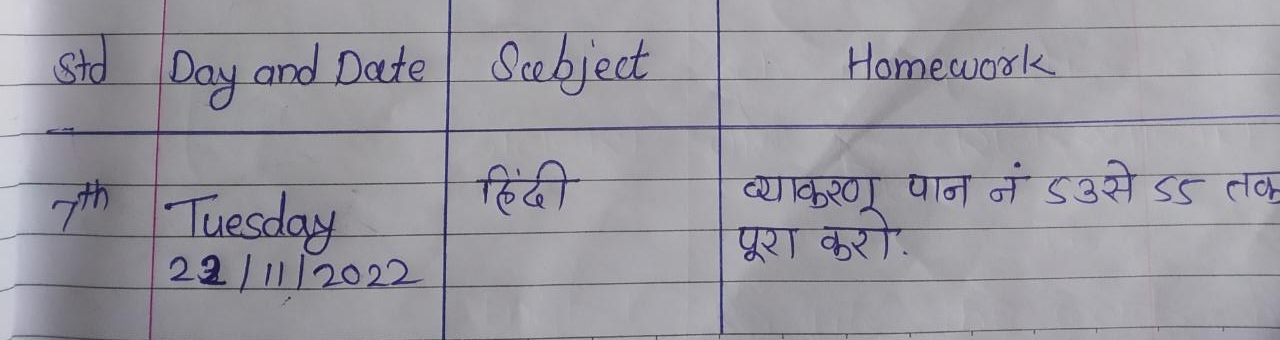 Std Day and Date Subject Homework
7th Tuesday हिंदी व्याकरण पान नं 53से 55 तक
22/11/2022 पूरा करो.